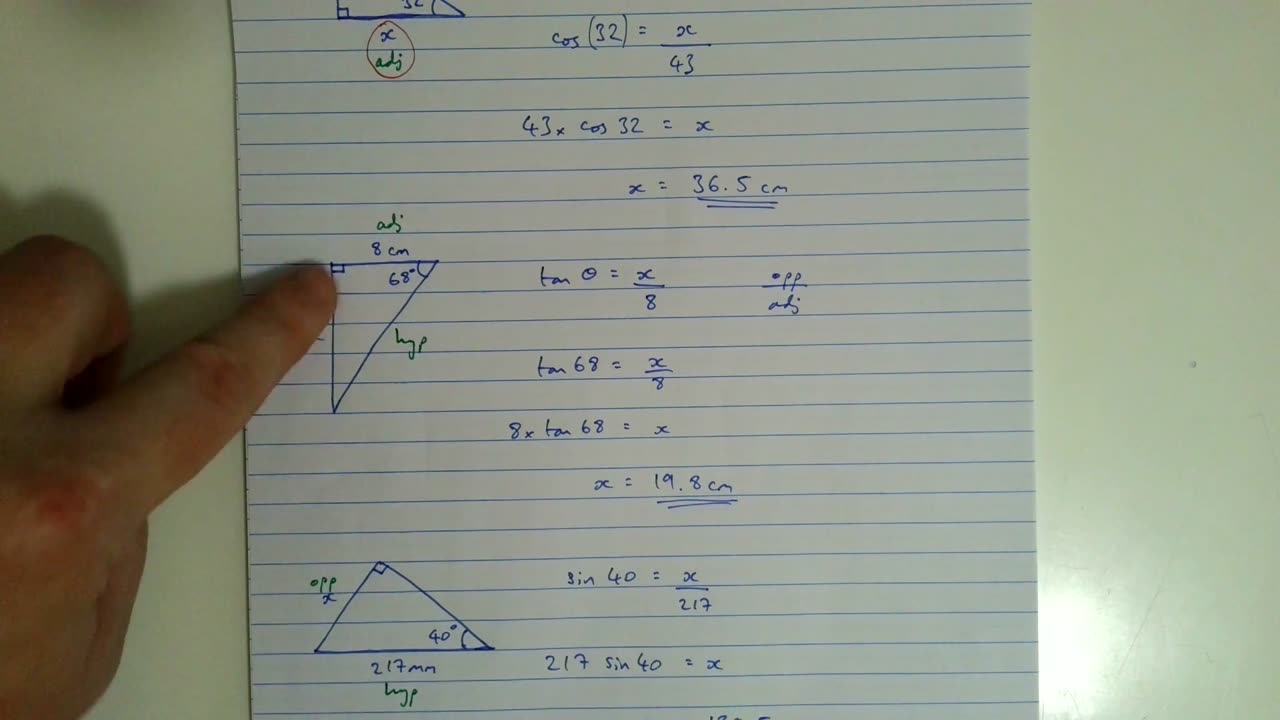 32
x
adj
cos (32) = x
43
43 x cos 32 = x
x = 36.5 cm
adj
8 cm
68°
hyp
tan θ = x
8
opp
adj
tan 68 = x
8
8 x tan 68 = x
x = 19.8 cm
opp
x
40°
217mm
hyp
sin 40 = x
217
217 sin 40 = x